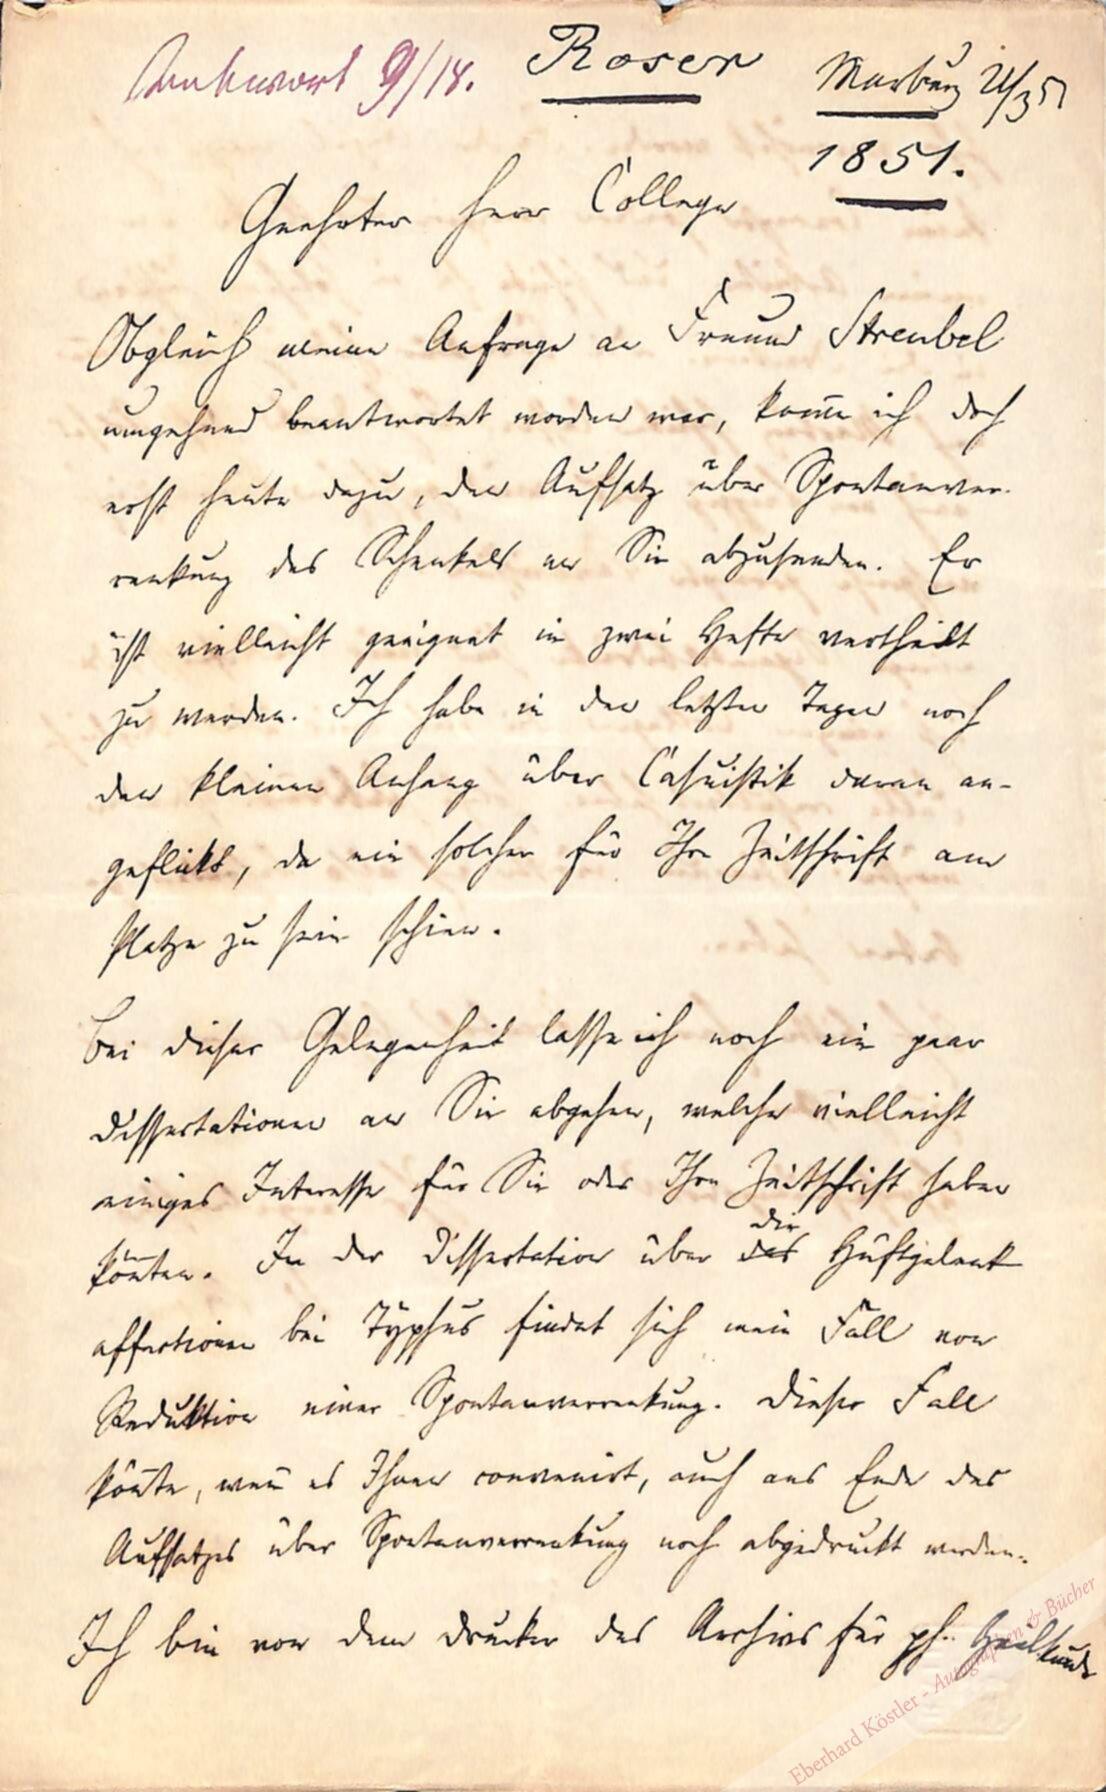 Antwort 9/18.
Roser
Marburg 21/3 51
1851.
Geehrter Herr College
Obgleich meine Anfrage an Freund Streubel
umgehend beantwortet worden war, kom̄e ich doch
erst heute dazu, den Aufsatz über Spontanver-
renkung des Schenkels an Sie abzusenden. Er
ist vielleicht geeignet in zwei Hefte vertheilt
zu werden. Ich habe in den letzten Tagen noch
den kleinen Anhang über Casuistik daran an-
geflickt, da ein solcher für Ihre Zeitschrift am
Platze zu sein schien.
Bei dieser Gelegenheit lasse ich noch ein paar
Dissertationen an Sie abgehen, welche vielleicht
einiges Interesse für Sie oder Ihre Zeitschrift haben
kön̄ten. In der Dissertation über das die Hüftgelenk
affectionen bei Typhus findet sich mein Fall von
Reduktion einer Spontanverrenkung. Dieser Fall
kön̄te, wen̄ es Ihnen convenirt, auch ans Ende des
Aufsatzes über Spontanverrenkung noch abgedruckt werden.
Ich bin von dem Drucker des Archivs für ph. Heilkunde
Eberhard Köstler - Autographen & Bücher